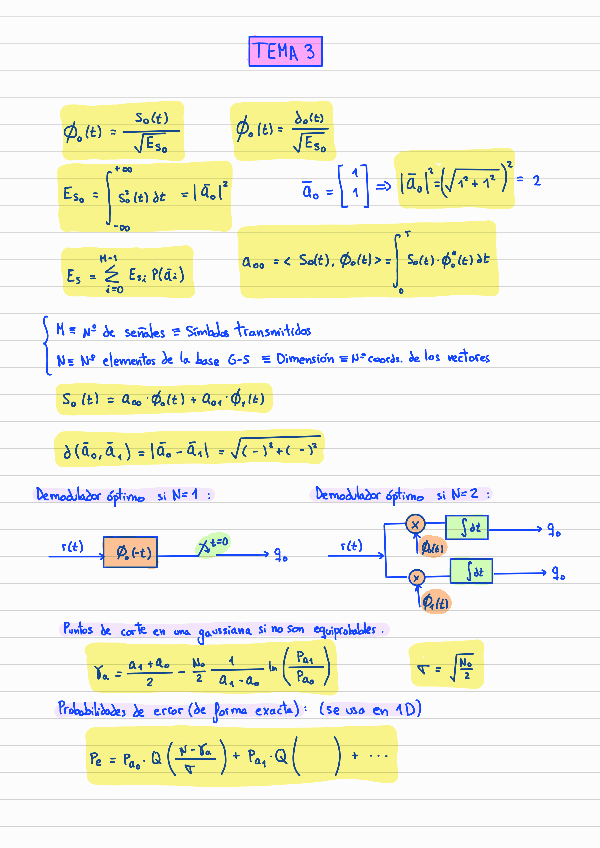 TEMA 3
ϕ₀(t) = S₀(t) / √E_{S₀}    ϕ₀(t) = d₀(t) / √E_{S₀}
E_{S₀} = ∫_{-∞}^{+∞} S₀²(t) dt = |ā₀|²    ā₀ = [1 1] ⇒ |ā₀|² = (√(1² + 1²))² = 2
E_S = Σ_{i=0}^{M-1} E_{Si} P(ā_i)    a₀₀ = < S₀(t), ϕ₀(t) > = ∫_0^T S₀(t)·ϕ₀*(t) dt
M ≡ Nº de señales ≡ Símbolos transmitidos
N ≡ Nº elementos de la base G-S ≡ Dimensión ≡ Nº coords. de los vectores
S₀(t) = a₀₀·ϕ₀(t) + a₀₁·ϕ₁(t)
d(ā₀, ā₁) = |ā₀ - ā₁| = √(( - )² + ( - )²)
Demodulador óptimo si N=1 :    Demodulador óptimo si N=2 :
r(t)    ϕ₀(-t)    t=0    q₀
r(t)    x    ϕ₀(t)    ∫dt    q₀
x    ϕ₁(t)    ∫dt    q₀
Puntos de corte en una gaussiana si no son equiprobables.
γₐ = (a₁ + a₀)/2 - N₀/2 1/(a₁ - a₀) ln (P_{a₁}/P_{a₀})    σ = √(N₀/2)
Probabilidades de error (de forma exacta): (se usa en 1D)
Pe = P_{a₀}·Q((N - γₐ)/σ) + P_{a₁}·Q(    ) + ...